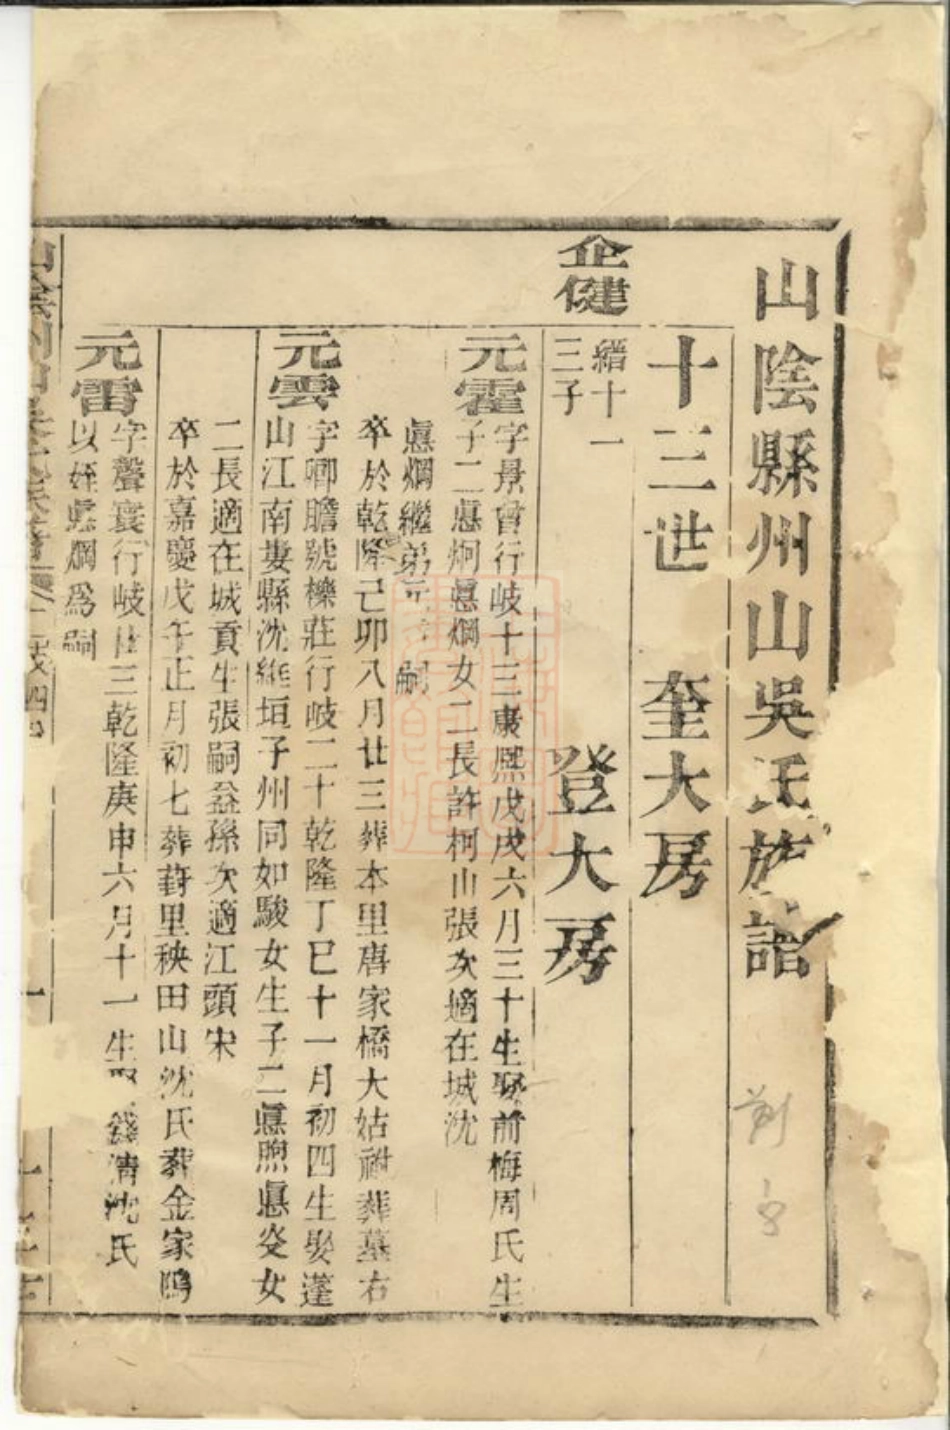 山陰縣州山吳氏族譜
十三世　奎大房
登大房
企健
縉十一
三子
元霍
字景曾行岐十三康熙戊戌六月三十生娶前梅周氏生
子二㥀炯㥀焵女二長許柯山張次適在城沈
㥀焵繼弟元 嗣
卒於乾隆己卯八月廿三葬本里唐家橋大姑祔葬墓右
元雲
字卿瞻號櫟莊行岐二十乾隆丁巳十一月初四生娶蓬
山江南婁縣沈維垣子州同如駿女生子二㥀煦㥀炎女
二長適在城貢生張嗣益孫次適江頭宋
卒於嘉慶戊午正月初七葬葑里秧田山沈氏葬金家隖
元雷
字聲寰行岐廿三乾隆庚申六月十一生 錢清沈氏
以姪㥀焵為嗣